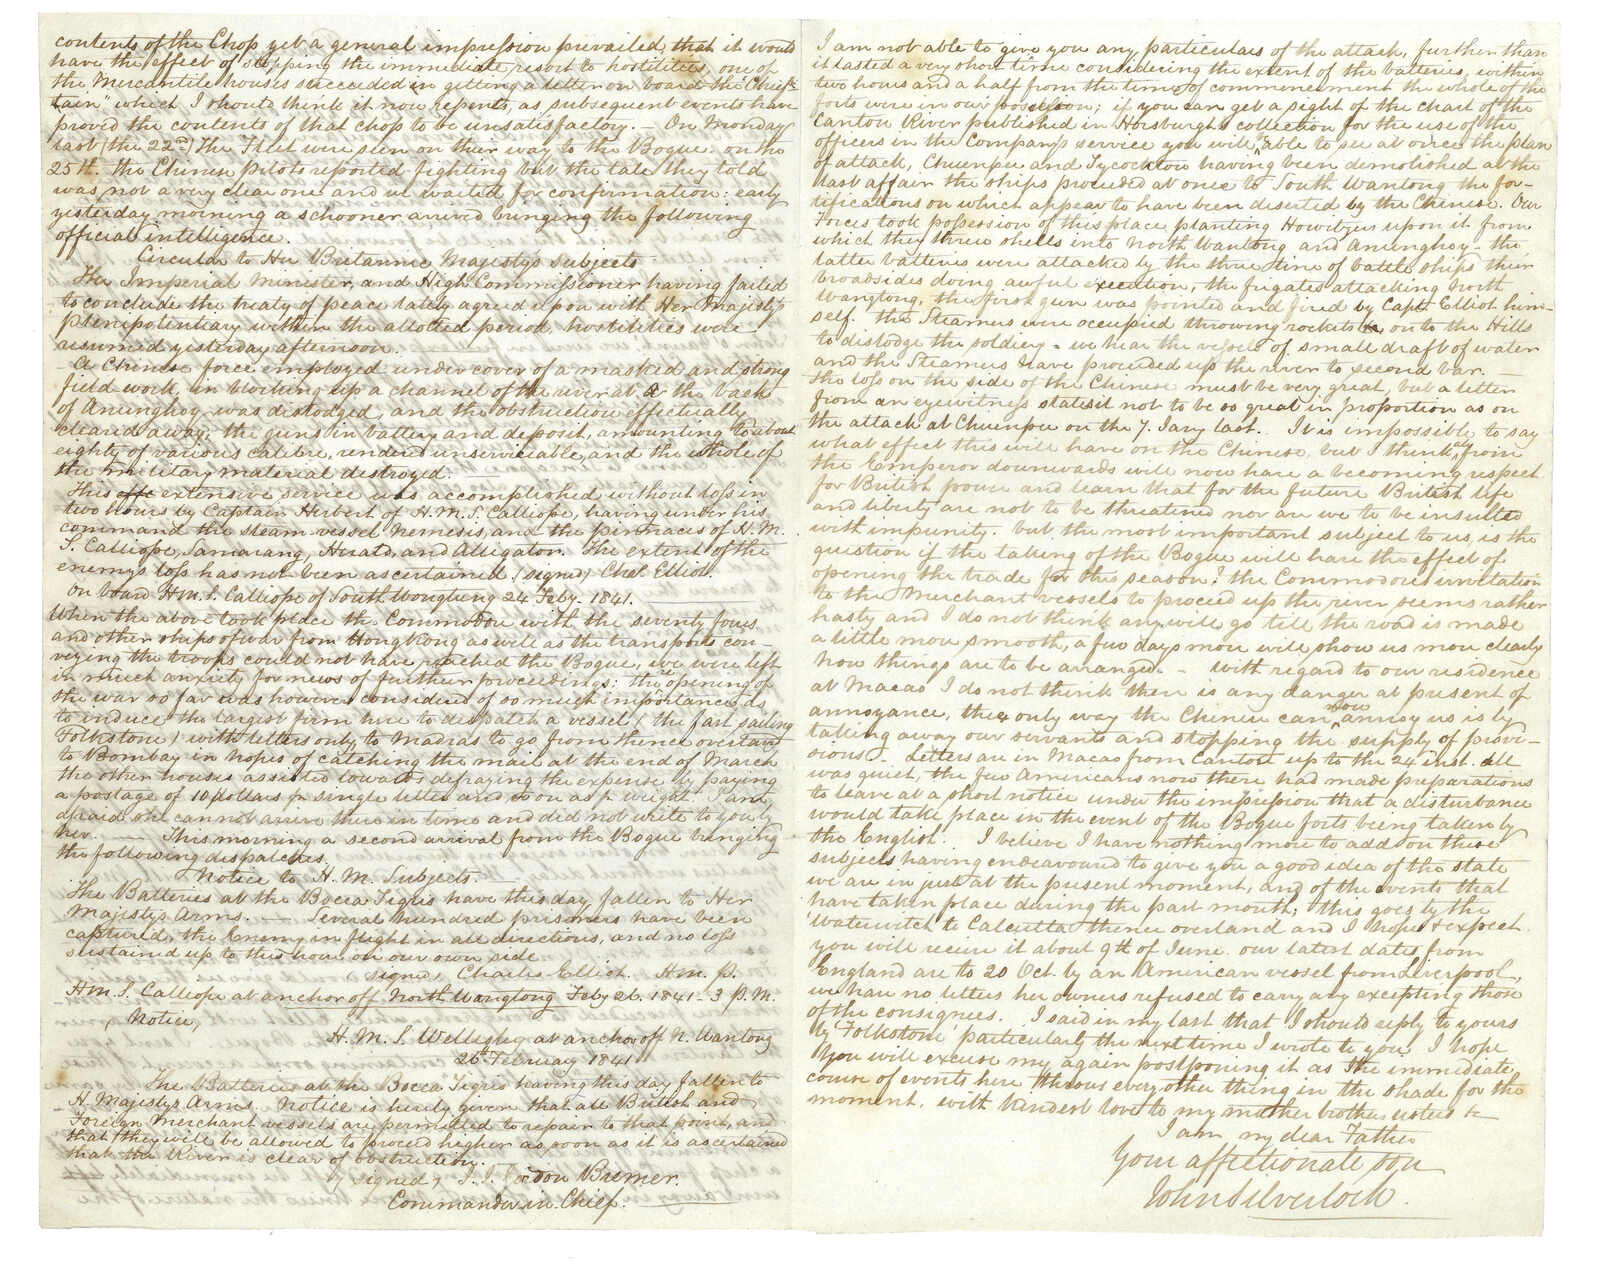 contents of the Chop yet a general impression prevailed, that it would
have the effect of stopping the immediate resort to hostilities, one of
the Mercantile houses succeeded in getting a letter on board the "Chief-
tain" which I should think it now repents, as subsequent events have
proved the contents of that chop to be unsatisfactory. — On Monday
last (the 22nd) the Fleet were seen on their way to the Bogue. on the
25th. the Chinese Pilots reported fighting but the tale they told
was not a very clear one and we waited for confirmation: early
yesterday morning a schooner arrived bringing the following
official intelligence.
Circular to Her Britannic Majesty's Subjects
The Imperial Minister, and High Commissioner having failed
to conclude the treaty of peace lately agreed upon with Her Majesty's
plenipotentiary within the allotted period, hostilities were
resumed yesterday afternoon.
A Chinese force employed under cover of a masked and strong
field work, in blocking up a channel of the river at the back
of Anunghoy was dislodged, and the obstruction effectually
cleared away; the guns in battery and deposit, amounting to about
eighty of various calibre, rendered unserviceable, and the whole of
the military material destroyed.
This extensive service was accomplished without loss in
two hours by Captain Herbert of H.M.S. Calliope, having under his
command the steam vessel Nemesis, and the pinnaces of H.M.
S. Calliope, Samarang, Herald, and Alligator. The extent of the
enemys loss has not been ascertained (signed) Chas. Elliot.
On board H.M.S. Calliope of South Wangtung 24 Feby. 1841.
When the above took place the Commodore with the seventy fours
and other ships of war from Hongkong as well as the transports con-
veying the troops could not have reached the Bogue, we were left
in much anxiety for news of further proceedings; the opening of
the war so far was however considered of so much importance as
to induce the largest firm here to despatch a vessel (the fast sailing
Folkstone) with letters only to Madras to go from thence overland
to Bombay in hopes of catching the mail at the end of March
the other houses assisted towards defraying the expense by paying
a postage of 10 dollars pr single letter and so on as pr weight. I am
afraid she cannot arrive there in time and did not write to you by
her. — This morning a second arrival from the Bogue bringing
the following dispatches.
Notice to H.M. Subjects. —
The Batteries at the Bocca Tigris have this day fallen to Her
Majesty's Arms. — Several hundred prisoners have been
captured, the Enemy in flight in all directions, and no loss
sustained up to this hour on our own side
signed, Charles Elliot. H.M. P.
H.M.S. Calliope at anchor off North Wangtong Feby 26. 1841 – 3 P.M.
Notice,
H.M.S. Wellesley at anchor off N. Wantong
26th February 1841
The Batteries at the Bocca Tigris having this day fallen to
H. Majesty's Arms. Notice is hereby given that all British and
Foreign Merchant vessels are permitted to repair to that point, and
that they will be allowed to proceed higher as soon as it is ascertained
that the River is clear of obstruction.
(signed) J. J. Gordon Bremer.
Commander in Chief.
I am not able to give you any particulars of the attack, further than
it lasted a very short time considering the extent of the batteries, within
two hours and a half from the time of commencement the whole of the
forts were in our possession; if you can get a sight of the chart of the
Canton River published in Horsburgh's collection for the use of the
officers in the Company's service you will able to see at once the plan
of attack, Chuenpee and Tycocktow having been demolished at the
last affair the ships proceeded at once to South Wantong the for-
tifications on which appear to have been deserted by the Chinese. Our
Forces took possession of this place planting Howitzers upon it from
which they threw shells into North Wantong and Anunghoy – the
latter batteries were attacked by the three line of battle ships their
broadsides doing awful execution, the frigates attacking North
Wangtong, the first gun was pointed and fired by Capt. Elliot him-
self. the Steamers were occupied throwing rockets on to the Hills
to dislodge the soldiery – we hear the vessels of small draft of water
and the Steamers have proceeded up the river to second bar. —
the loss on the side of the Chinese must be very great, but a letter
from an eyewitness states it not to be so great in proportion as on
the attack at Chuenpee on the 7. Jany last. It is impossible to say
what effect this will have on the Chinese, but I think they from
the Emperor downwards will now have a becoming respect
for British power and learn that for the future British life
and liberty are not to be threatened nor are we to be insulted
with impunity. but the most important subject to us, is the
question if the taking of the Bogue will have the effect of
opening the trade for this season? the Commodore's invitation
to the Merchant vessels to proceed up the river seems rather
hasty and I do not think any will go till the road is made
a little more smooth, a few days more will show us more clearly
how things are to be arranged. — With regard to our residence
at Macao I do not think there is any danger at present of
annoyance, the only way the Chinese can now annoy us is by
taking away our servants and stopping the supply of provi-
sions. Letters are in Macao from Canton up to the 24 inst. all
was quiet, the few Americans now there had made preparations
to leave at a short notice under the impression that a disturbance
would take place in the event of the Bogue forts being taken by
the English. I believe I have nothing more to add on these
subjects having endeavoured to give you a good idea of the state
we are in just at the present moment, and of the events that
have taken place during the past month; this goes by the
'Waterwitch' to Calcutta thence overland and I hope & expect
you will receive it about 9th of June. our latest dates from
England are to 20 Oct. by an American vessel from Liverpool,
we have no letters her owners refused to carry any excepting those
of the consignees. I said in my last that I should reply to yours
by 'Folkstone' particularly the next time I wrote to you, I hope
you will excuse my again postponing it as the immediate
course of events here throws every other thing in the shade for the
moment. with kindest love to my mother brothers sisters &c
I am my dear Father
Your affectionate son
John Silverlock.